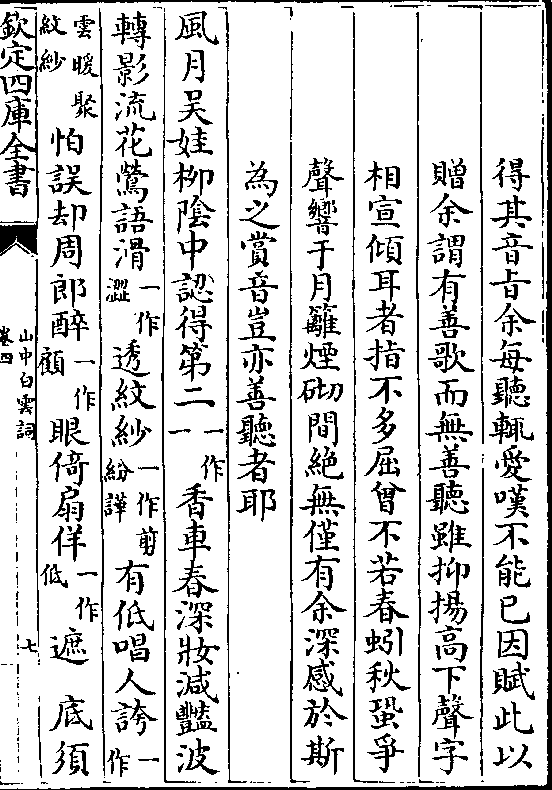 得其音旨余每聽輒愛嘆不能已因賦此以
贈余謂有善歌而無善聽雖抑揚高下聲字
相宣傾耳者指不多屈曾不若春蚓秋蛩爭
聲響于月籬煙砌間絶無僅有余深感於斯
為之賞音豈亦善聽者耶
風月吴娃柳陰中認得第二一作一香車春深妝減艷波
轉影流花鶯語滑一作澀透紋紗一作剪紛譁有低唱人誇一作
雲暖聚紋紗怕誤却周郎醉一作顧眼倚扇佯一作低遮 底須
欽定四庫全書
山中白雲詞
卷四
七